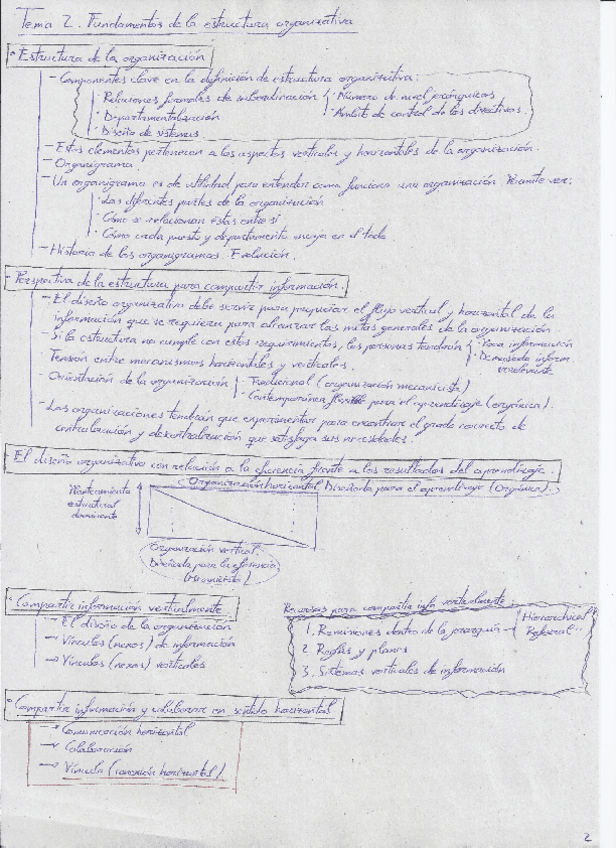 Tema 2. Fundamentos de la estructura organizativa
· Estructura de la organización
- Componentes clave en la definición de estructura organizativa:
· Relaciones formales de subordinación { · Número de nivel jerárquicos
· Ámbito de control de los directivos.
· Departamentalización
· Diseño de sistemas
- Estos elementos pertenecen a los aspectos verticales y horizontales de la organización.
- Organigrama
- Un organigrama es de utilidad para entender como funciona una organización. Permite ver:
· Las diferentes partes de la organización
· Cómo se relacionan éstas entre sí
· Cómo cada puesto y departamento encaja en el todo
- Historia de los organigramas. Evolución.
- Perspectiva de la estructura para compartir información.
- El diseño organizativo debe servir para propiciar el flujo vertical y horizontal de la
información que se requiera para alcanzar las metas generales de la organización
- Si la estructura no cumple con estos requerimientos, las personas tendrán { · Poca información
· Demasiada inform.
irrelevante.
- Tensión entre mecanismos horizontales y verticales.
- Orientación de la organización - Tradicional (organización mecanicista)
- Contemporánea flexible para el aprendizaje (orgánica).
- Las organizaciones tendrán que experimentar para encontrar el grado correcto de
centralización y descentralización que satisfaga sus necesidades.
- El diseño organizativo con relación a la eficiencia frente a los resultados del aprendizaje.
Organización horizontal Diseñada para el aprendizaje (Orgánica).
Planteamiento
estructural
dominante
Organización vertical.
Diseñada para la eficiencia
(Mecanicista)
· Compartir información verticalmente
- El diseño de la organización
- Vínculos (nexos) de información
- Vínculos (nexos) verticales
Recursos para compartir infn verticalmente:
1. Remisiones dentro de la jerarquía → Hierarchical
Referral
2. Reglas y planes
3. Sistemas verticales de información
· Compartir información y colaborar en sentido horizontal
→ Comunicación horizontal
→ Colaboración
→ Vínculo (conexión horizontal).
2